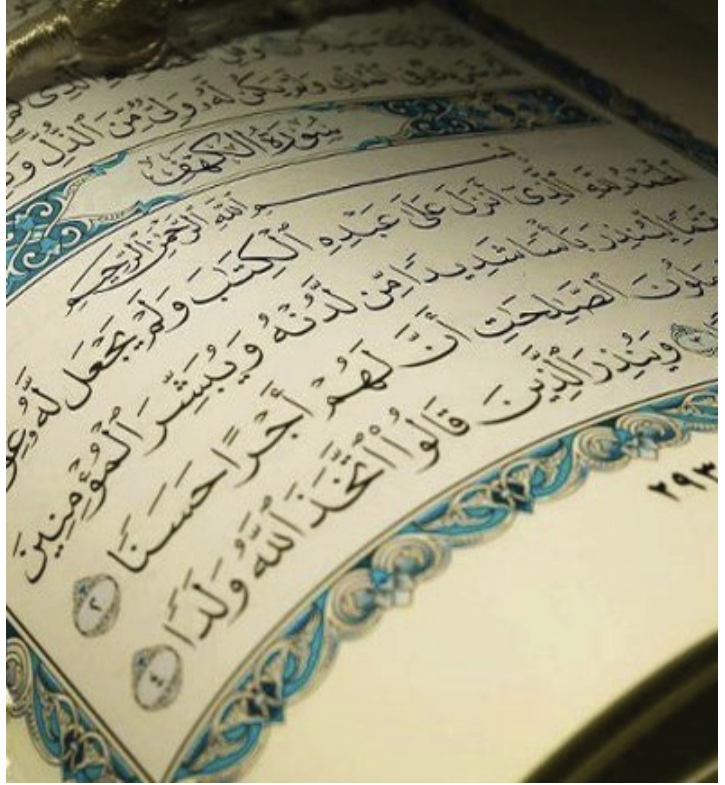 وَلَمْ يَكُن لَّهُۥ وَلِىٌّ مِّنَ ٱلذُّلِّ
سُورَةُ الكَهْفِ
بِسْمِ ٱللَّهِ ٱلرَّحْمَٰنِ ٱلرَّحِيمِ
ٱلْحَمْدُ لِلَّهِ ٱلَّذِىٓ أَنزَلَ عَلَىٰ عَبْدِهِ ٱلْكِتَٰبَ وَلَمْ يَجْعَل لَّهُۥ
لِّيُنذِرَ بَأْسًا شَدِيدًا مِّن لَّدُنْهُ وَيُبَشِّرَ ٱلْمُؤْمِنِينَ
ٱلصَّٰلِحَٰتِ أَنَّ لَهُمْ أَجْرًا حَسَنًا ٢
٣ وَيُنذِرَ ٱلَّذِينَ قَالُوا۟ ٱتَّخَذَ ٱللَّهُ وَلَدًا ٤
٢٩٣